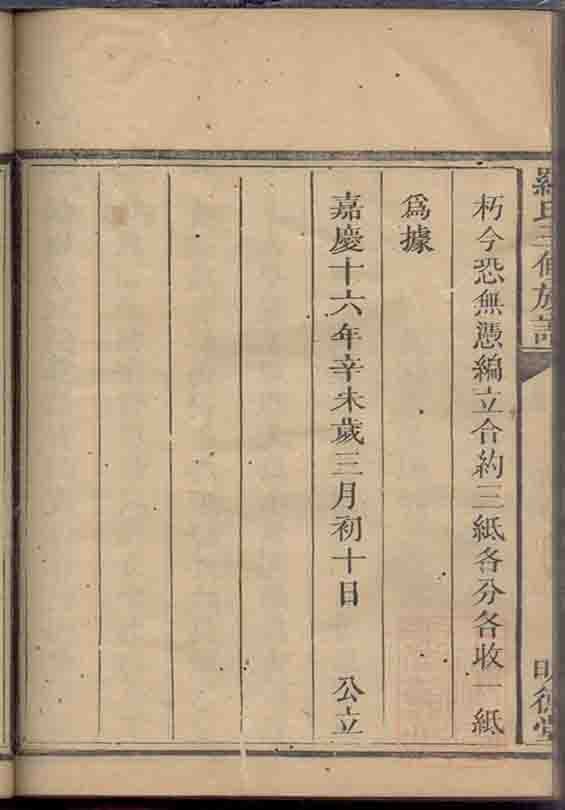 羅氏三修族譜
明德堂
朽今恐無憑編立合約三紙各分各收一紙
爲據
嘉慶十六年辛未歲三月初十日 公立